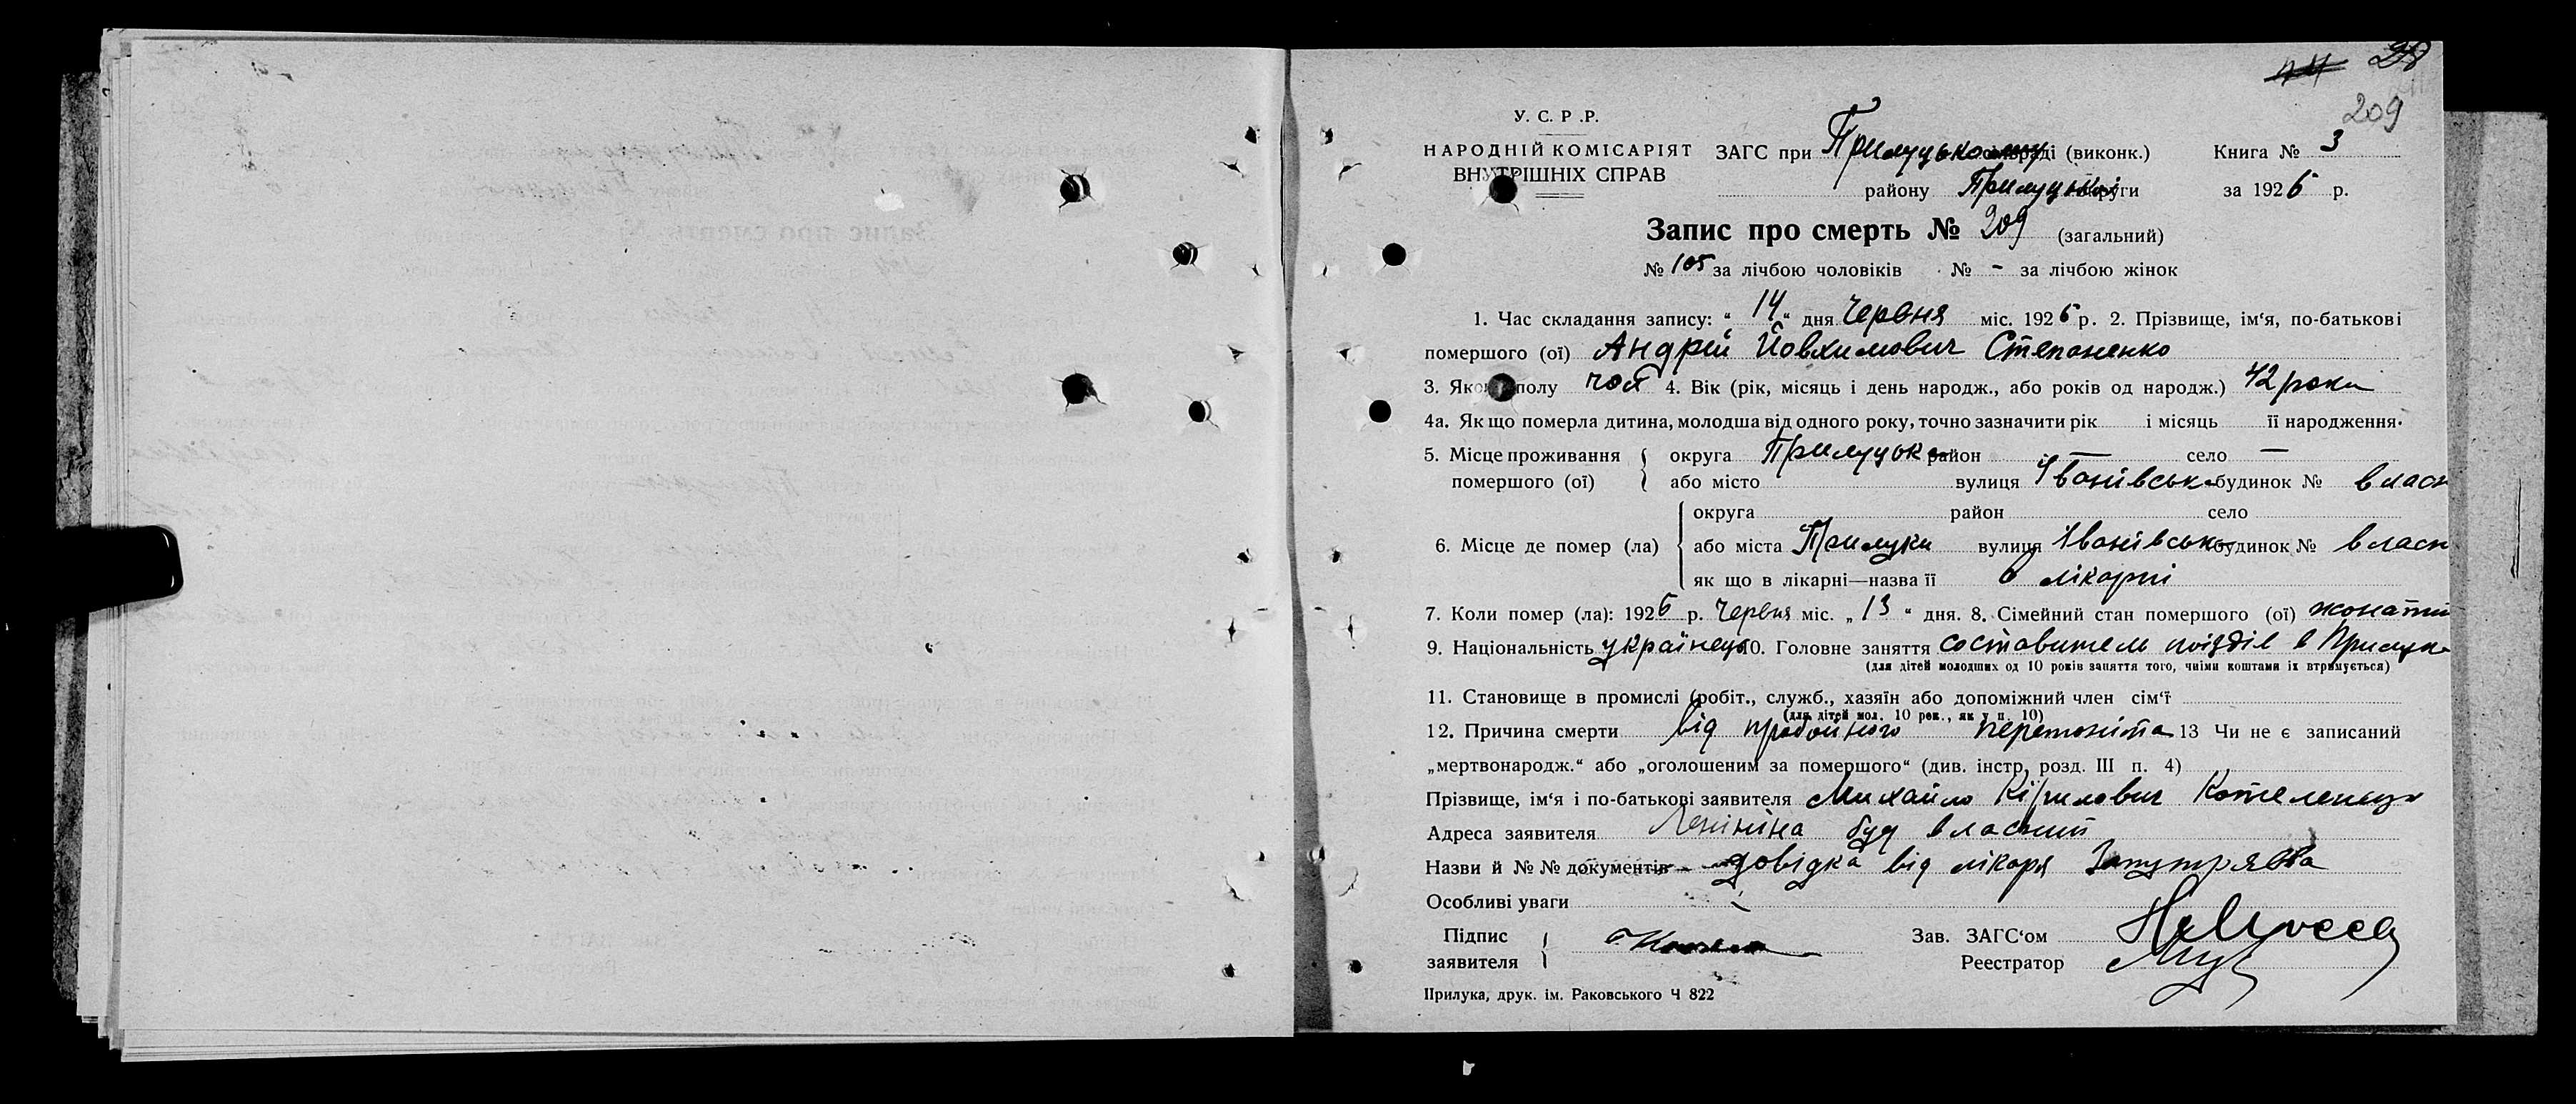 28
209
У. С. Р .Р.
НАРОДНІЙ КОМІСАРІЯТ
ВНУТРІШНІХ СПРАВ
ЗАГС при Прилуцькому сільраді (виконк.)
району Прилуцької округи
Книга № 3
за 1926 р.
Запис про смерть № 209 (загальний)
№ 105 за лічбою чоловіків № - за лічбою жінок
1. Час складання запису: „ 14 “ дня Червня міс. 1926 р. 2. Прізвище, ім‘я, по-батькові
помершого (ої) Андрій Йовхимович Степаненко
3. Якого полу чол 4. Вік (рік, місяць і день народж., або років од народж.) 42 роки
4а. Як що померла дитина, молодша від одного року, точно зазначити рік і місяць її народження.
5. Місце проживання округа Прилуцьк район — село —
помершого (ої) або місто вулиця Іванівськ будинок № власн
округа район село
6. Місце де помер (ла) або міста Прилуки вулиця Іванівськ будинок № власн
як що в лікарні—назва її в лікарні
7. Коли помер (ла): 1926 р. Червня міс. „ 13 “ дня. 8. Сімейний стан помершого (ої) жонатий
9. Національність українець 10. Головне заняття составитель поїздів в Прилуках
(для дітей молодших од 10 років заняття того, чиїми коштами їх втримується)
11. Становище в промислі (робіт., служб., хазяїн або допоміжний член сім‘ї
(для дітей мол. 10 рок., як у п. 10)
12. Причина смерти від пробойного перетоніта 13 Чи не є записаний
„мертвонародж.“ або „оголошеним за помершого“ (див. інстр. розд. III п. 4)
Прізвище, ім‘я і по-батькові заявителя Михайло Кірилович Котеленець
Адреса заявителя Леніна буд власний
Назви й № № документів - довідка від лікаря
Особливі уваги -
Підпис
заявителя
Зав. ЗАГС‘ом
Реестратор
Прилука, друк. ім. Раковського Ч 822